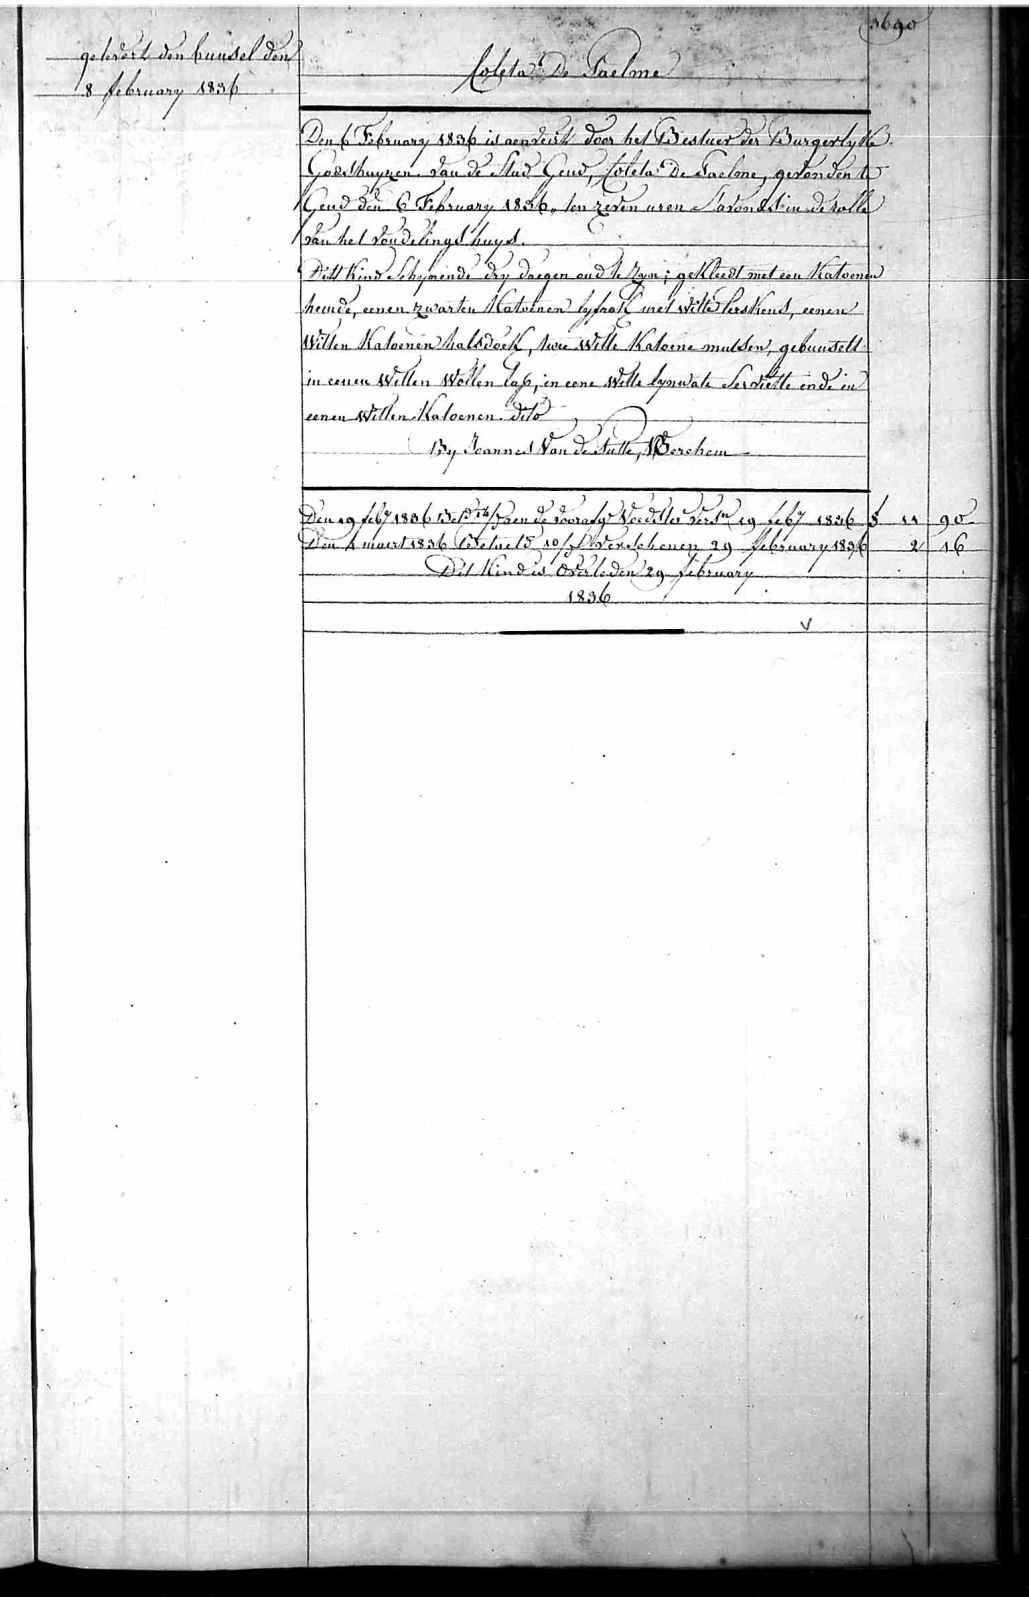 3690
gelevert den bunsel den
8 february 1836
Coleta De Paelme
Den 6 February 1836 is aenveirt door het Bestuer der Burgerlyke
Godshuyzen van de Stad Gend, Coleta De Paelme, gevonden te
Gend den 6 February 1836, ten zeven uren s'avonds in de rolle
van het vondelings huys.
Ditt Kind Schynende dry daegen oud te Zyn; gekleedt met een Katoenen
hemde, eenen zwarten Katoenen lyfrok met witte leeskens, eenen
Witten Katoenen halsdoek, twee Witte Katoene mutsen, gebunselt
in eenen Witten Wollen lap, in eene Witte lynwate Serviette ende in
eenen Witten Katoenen dito
By Joannes Van de Putte, Berchem
Den 19 feby 1836 aen de voorafg Voedster 19 feby 1836 f 11 90
Den 4 maert 1836 Betaeld verschenen 29 february 1836 2 16
Dit Kind is Overleden 29 february
1836